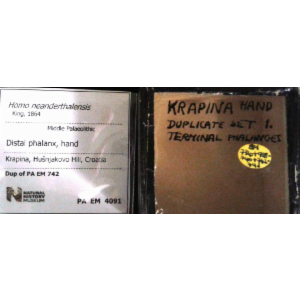 Homo neanderthalensis
King, 1864
Middle Palaeolithic
Distal phalanx, hand
Krapina, Hušnjakovo Hill, Croatia
Dup of PA EM 742
NATURAL
HISTORY
MUSEUM
PA EM 4091
KRAPINA HAND
DUPLICATE SET 1.
TERMINAL PHALANGES